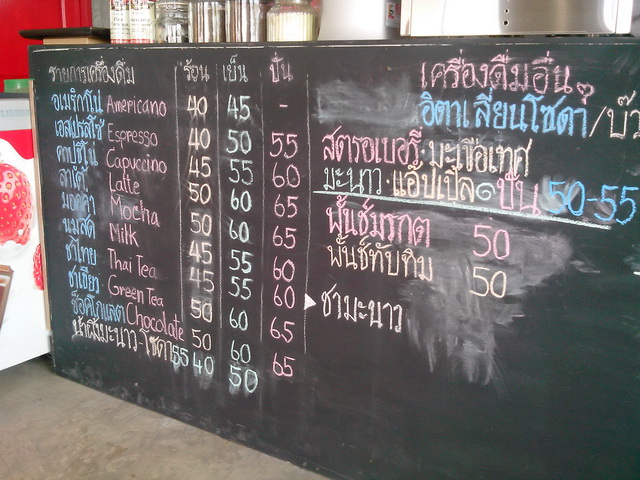 รายการเครื่องดื่ม ร้อน เย็น ปั่น
อเมริกาโน่ Americano 40 45 -
เอสเปรสโซ่ Espresso 40 50 55
คาปูชิโน่ Capuccino 45 55 60
ลาเต้ Latte 50 60 65
มอคค่า Mocha 50 60 65
นมสด Milk 45 55 60
ชาไทย Thai Tea 45 55 60
ชาเขียว Green Tea 50 60 65
ช็อคโกแลต Chocolate 50 60 65
น้ำผึ้งมะนาว-โซดา 55 40 50
เครื่องดื่มอื่นๆ
อิตาเลียนโซดา/บ๊วย
สตรอเบอรี่.มะเขือเทศ
มะนาว.แอ๊ปเปิ้ล ปั่น 50-55
พั้นช์มรกต 50
พั้นช์ทับทิม 50
ชามะนาว